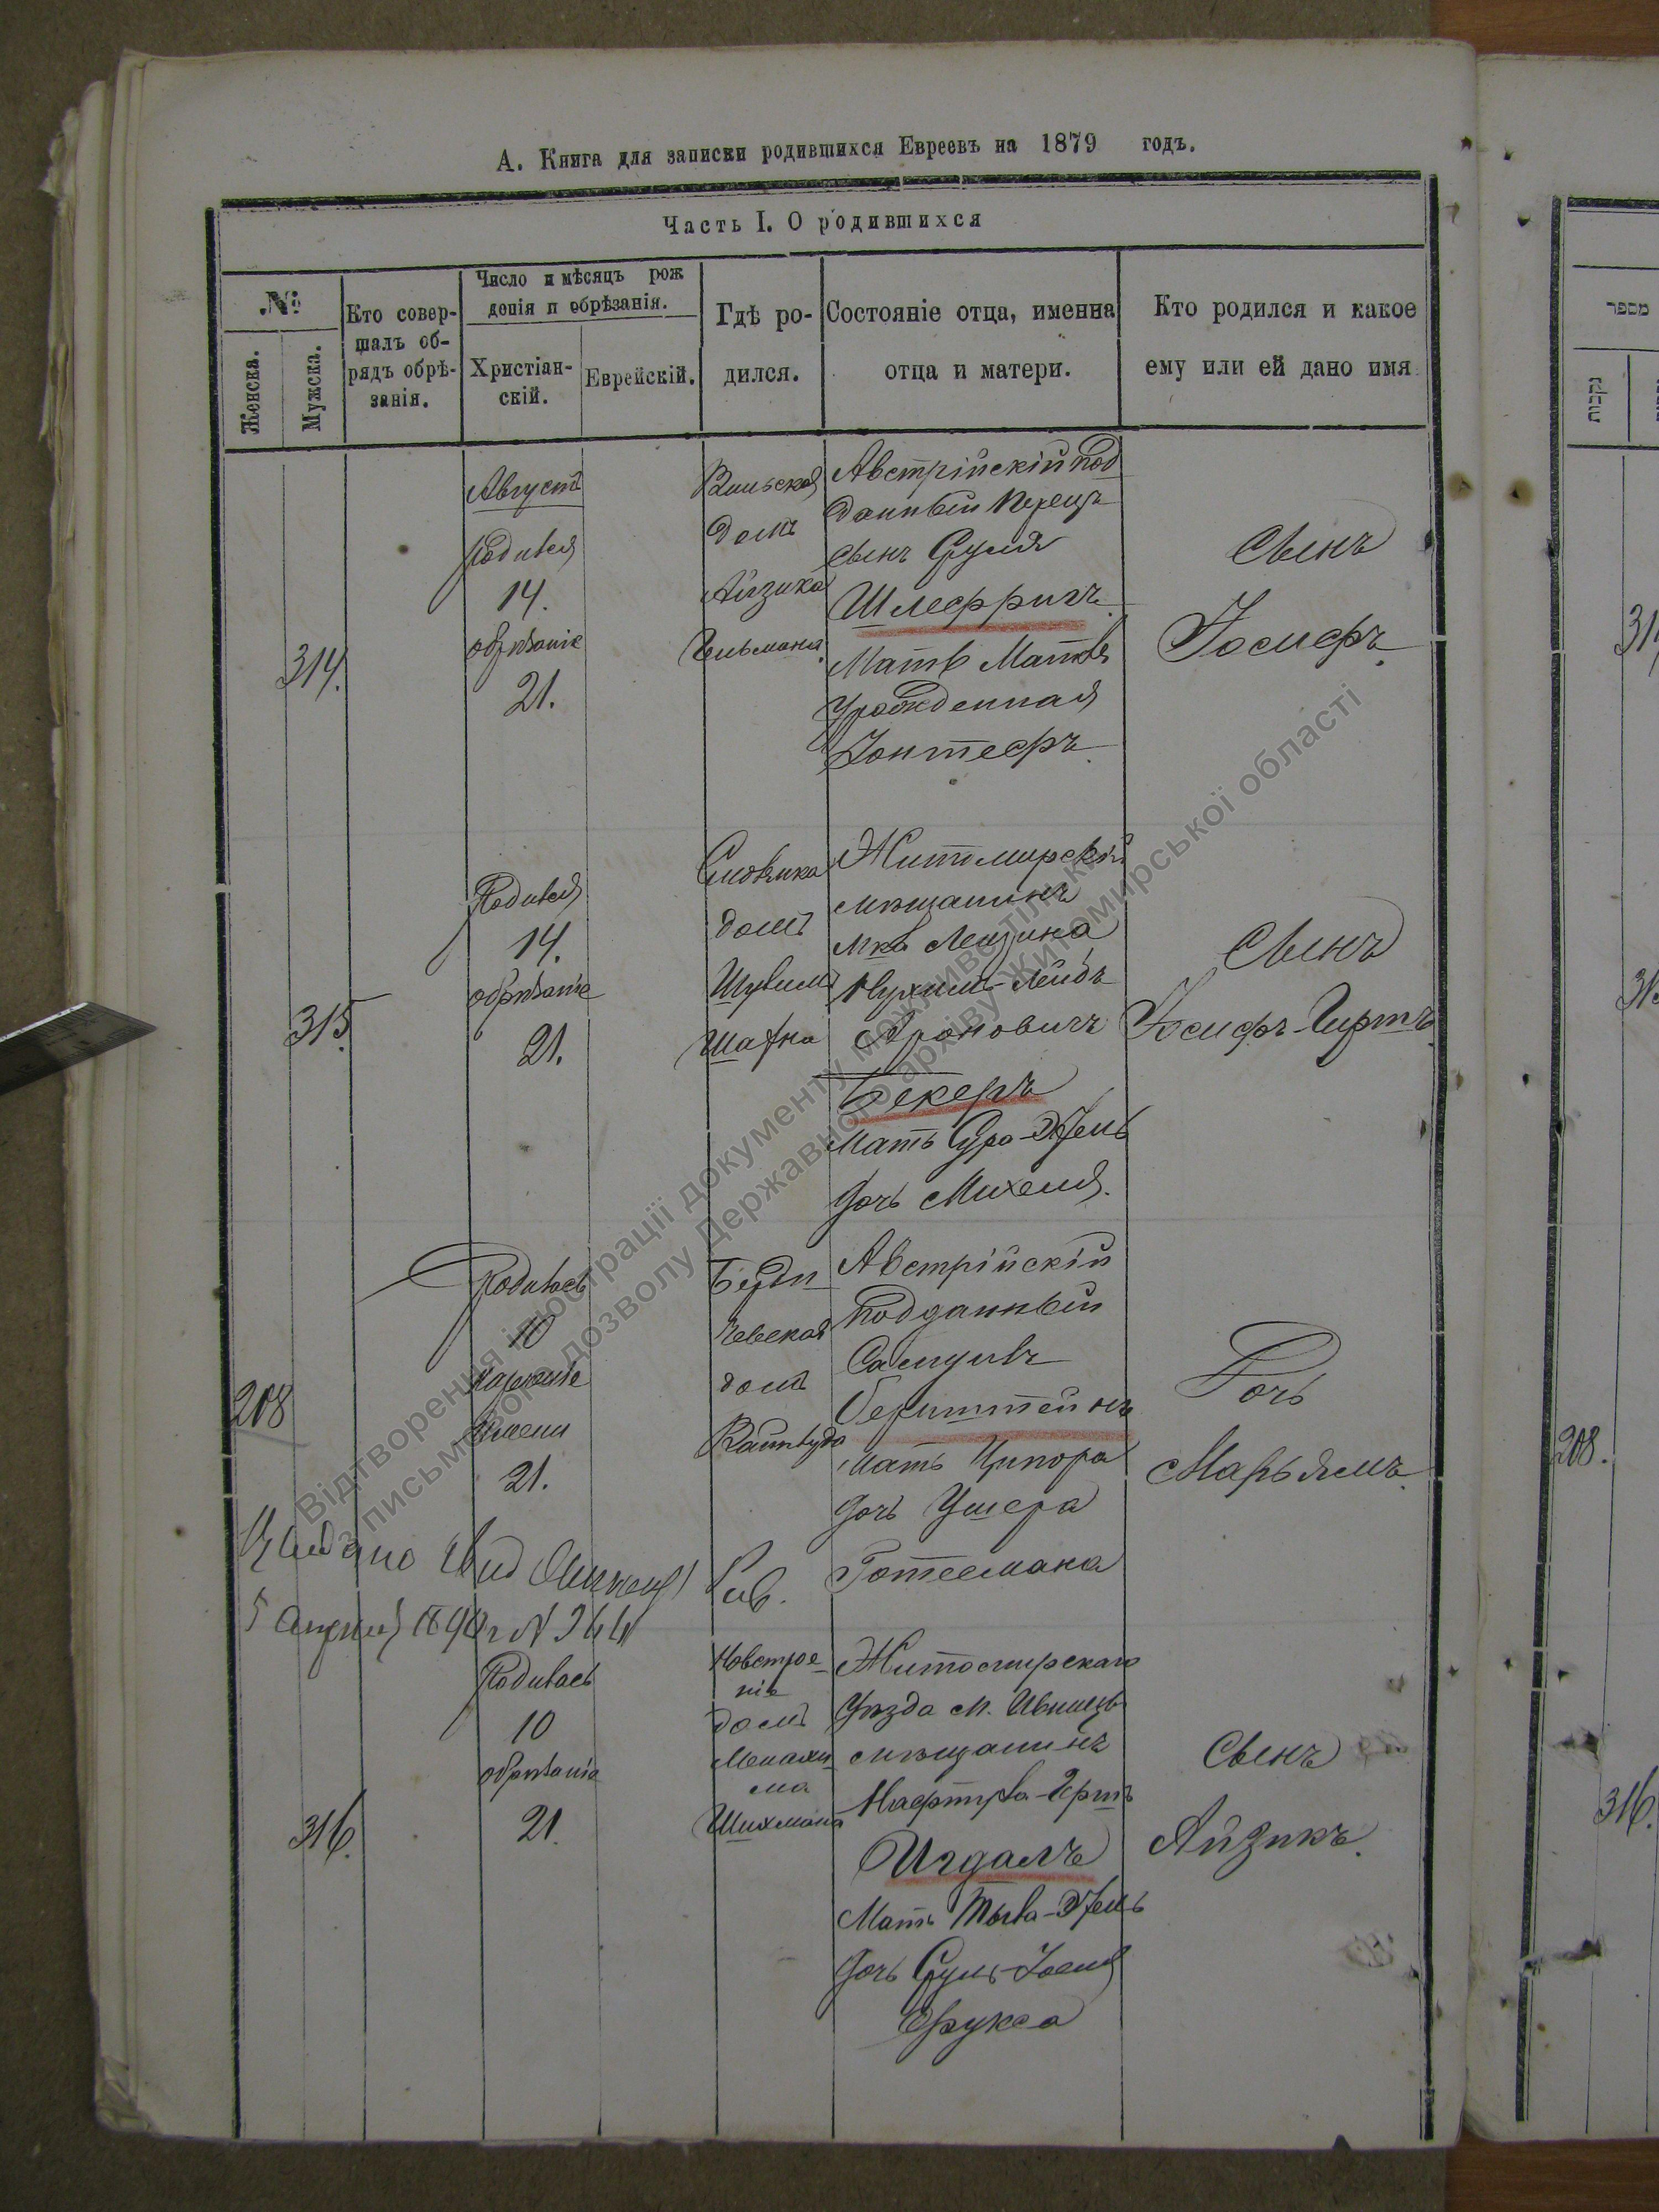 А. Книга для записки родившихся Евреевъ на 1879 годъ.
Часть I. О родившихся
№
Женска.
Мужска.
Кто совер-
шалъ об-
рядъ обрѣ-
занія.
Число и мѣсяцъ рож
денія и обрѣзанія.
Христіан-
скій.
Еврейскій.
Гдѣ ро-
дился.
Состояніе отца, именна
отца и матери.
Кто родился и какое
ему или ей дано имя
314.
Августъ
Родился
14.
обрѣзаніе
21.
Вильская
домъ
Айзика
Гельмана.
Австрійскій под
данный Перецъ
сынъ Сруля
Шлефригъ
Мать Матля
Урожденная
Сынъ
Іосифъ.
315.
Родился
14.
обрѣзаніе
21.
домъ
Житомирскій
мѣщанинъ
Нухимъ-Лейбъ
Ароновичъ
Бекеръ
Мать Сура-Этель
дочь Михеля.
Сынъ
Іосифъ-Гиршъ.
208
Родилась
10
Нареченіе
Имени
21.
Берди-
чевская
домъ
Австрійскій
подданный
Самуилъ
Бернштейнъ
Мать Ципора
дочь Ушера
Готесмана
Дочь
Марьямъ.
Выдано
5 апреля
316.
Родилась
10
обрѣзанія
21.
Новстрое-
ніе
домъ
Менахи-
ма
Шихмана
Житомирскаго
Уѣзда м. Ивницы
мѣщанинъ
Нафтула-Гершъ
Игдалъ
Мать Этель
дочь Сруль-Іоеля
Сынъ
Айзикъ.
מספר
נקבות
314
315
208.
316.
Відтворення ілюстрації документу можливо тільки
з письмового дозволу Державного архіву Житомирської області